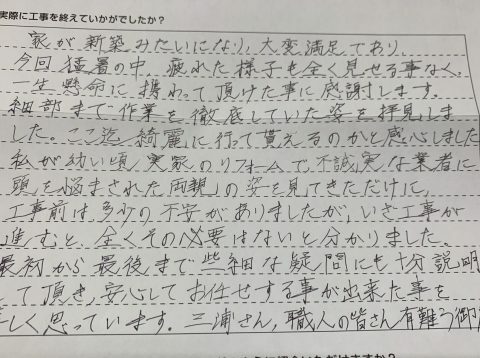 実際に工事を終えていかがでしたか？
家が新築みたいになり、大変満足であり、
今回猛暑の中、疲れた様子も全く見せる事なく、
一生懸命に携わって頂けた事に感謝します。
細部まで作業を徹底していた姿を拝見しま
した。ここ迄綺麗に行って貰えるのかと感心しました
私が幼い頃、実家のリフォームで、不誠実な業者に
頭を悩まされた両親の姿を見てきただけに、
工事前は多少の不安がありましたが、いざ工事が
進むと、全くその必要はないと分かりました。
最初から最後まで些細な疑問にも十分説明
して頂き、安心してお任せする事が出来た事を
しく思っています。三浦さん、職人の皆さん有難う御